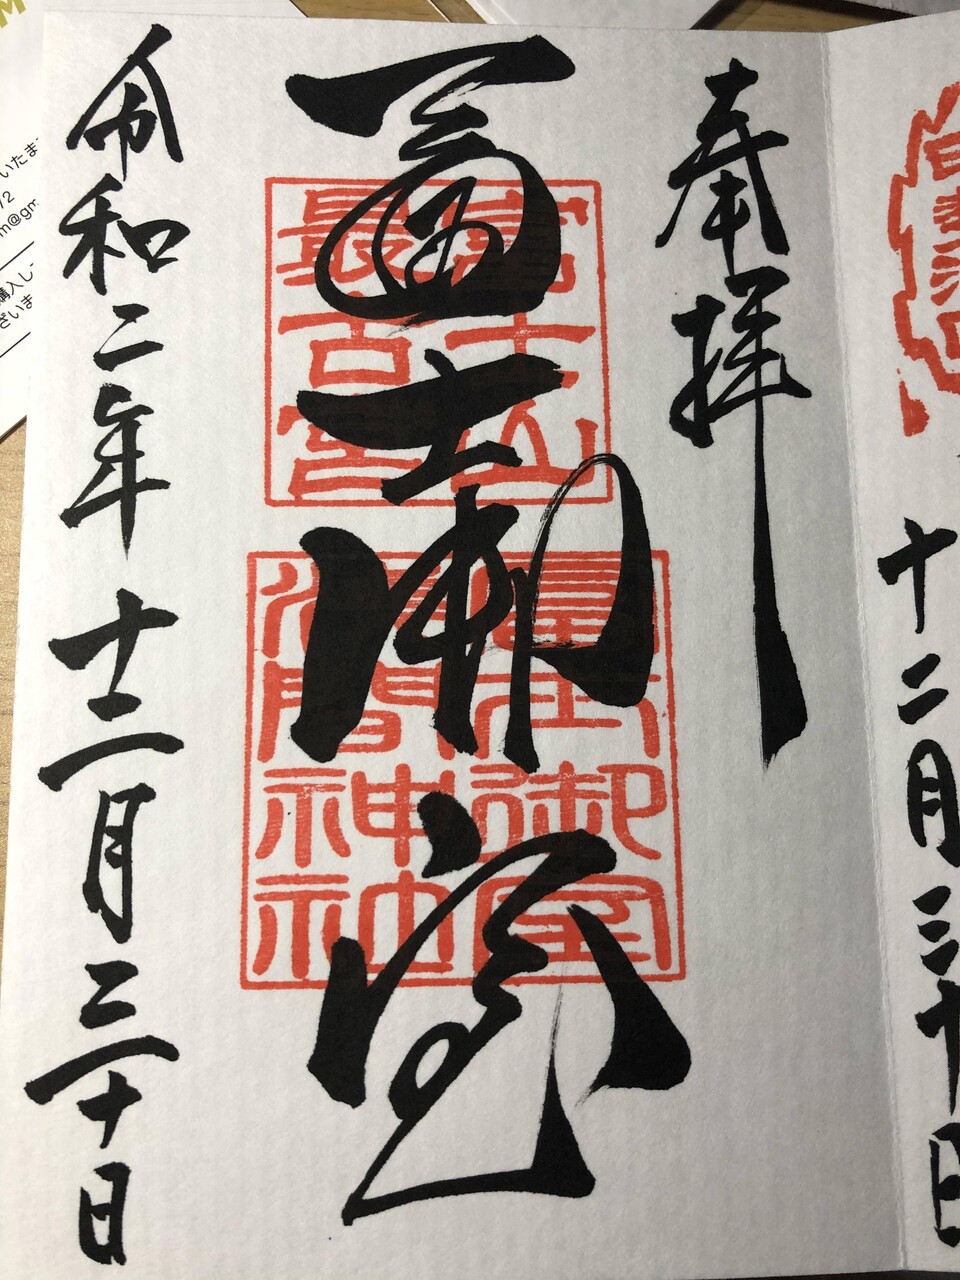 奉拝
冨士御室
富士山
最古宮
冨士御室
浅間神社
令和二年十二月三十日
十二月三十日
いたま
m@gm
購入し
ざいま